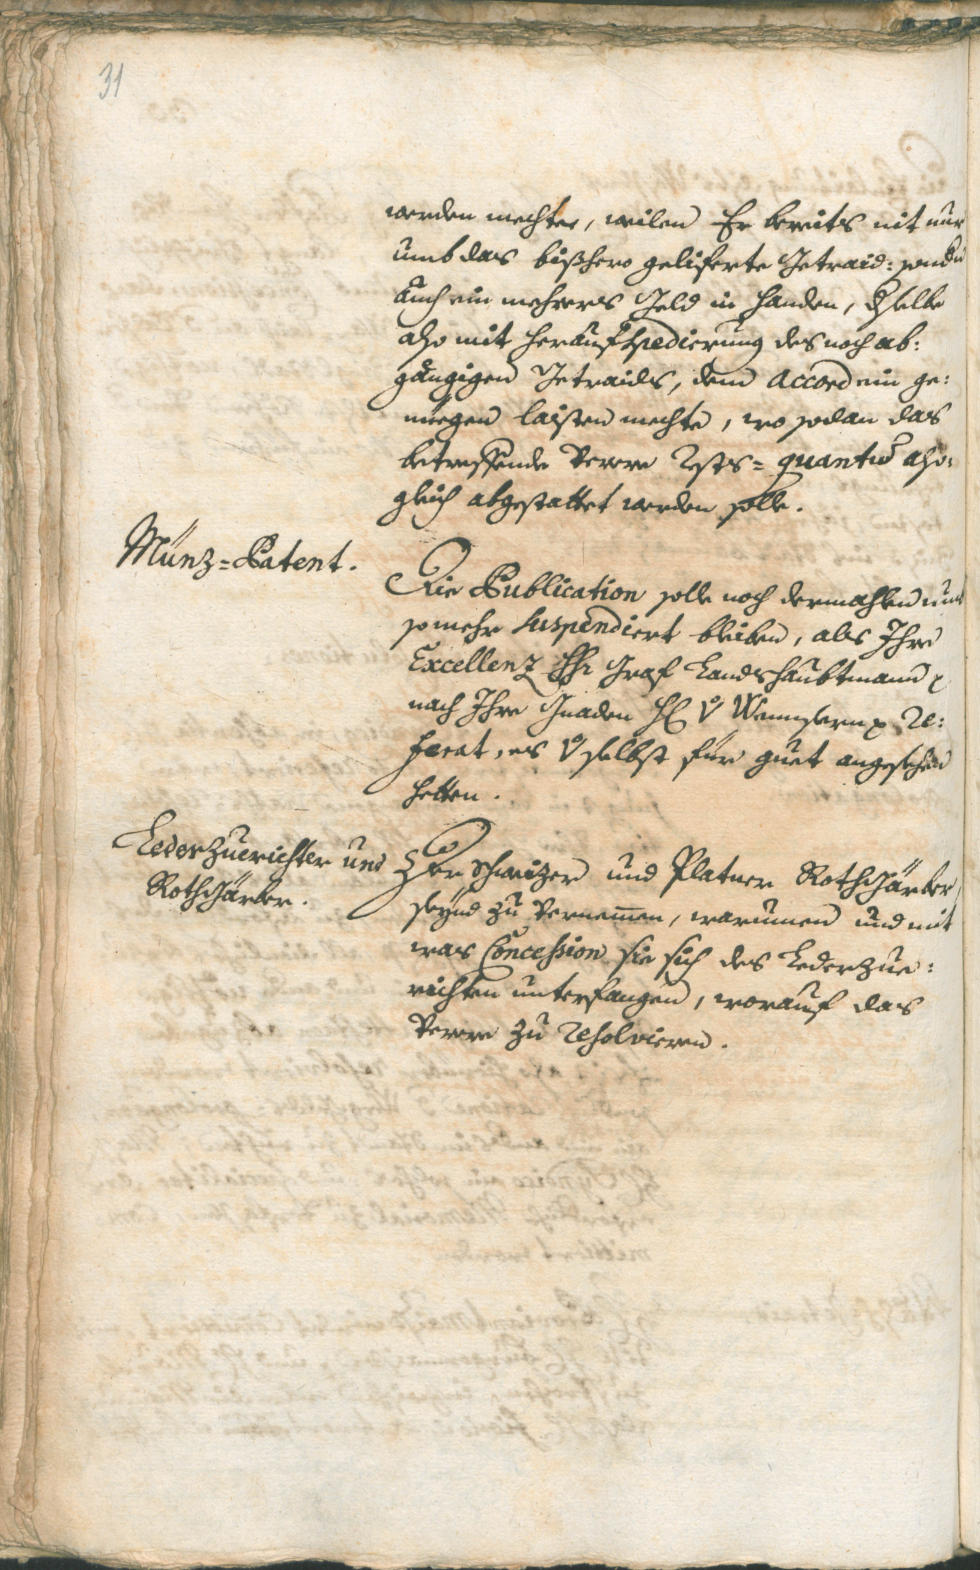 31
werden mechte, weilen Er bereits nit nur
umb das bißhero geliferte Getraid: sondern
auch ein mehrers Geld in Handen, dselbe
also mit heraufspedierung des noch ab:
gängigen Getraids, dem Accord ein ge:
niegen laisten mechte, wo sodan das
betreffende weitere quantum also:
gleich abgestattet werden solle.
Münz=Patent.
Die Publication solle noch dermahlen umb
so mehr suspendiert bleiben, als Ihre
Excellenz Hr Graf Landshaubtmann
nach Ihre Gnaden H v Re:
ferat, es selbst für guet angesehen
hetten.
Lederzuerichter und
Rothgärber.
Der Schweizer und Platner Rothgärber,
seynd zu vernemmen, warumen und mit
was Concession sie sich des Lederzue:
richten unterfangen, worauf das
weitere zu resolvieren.